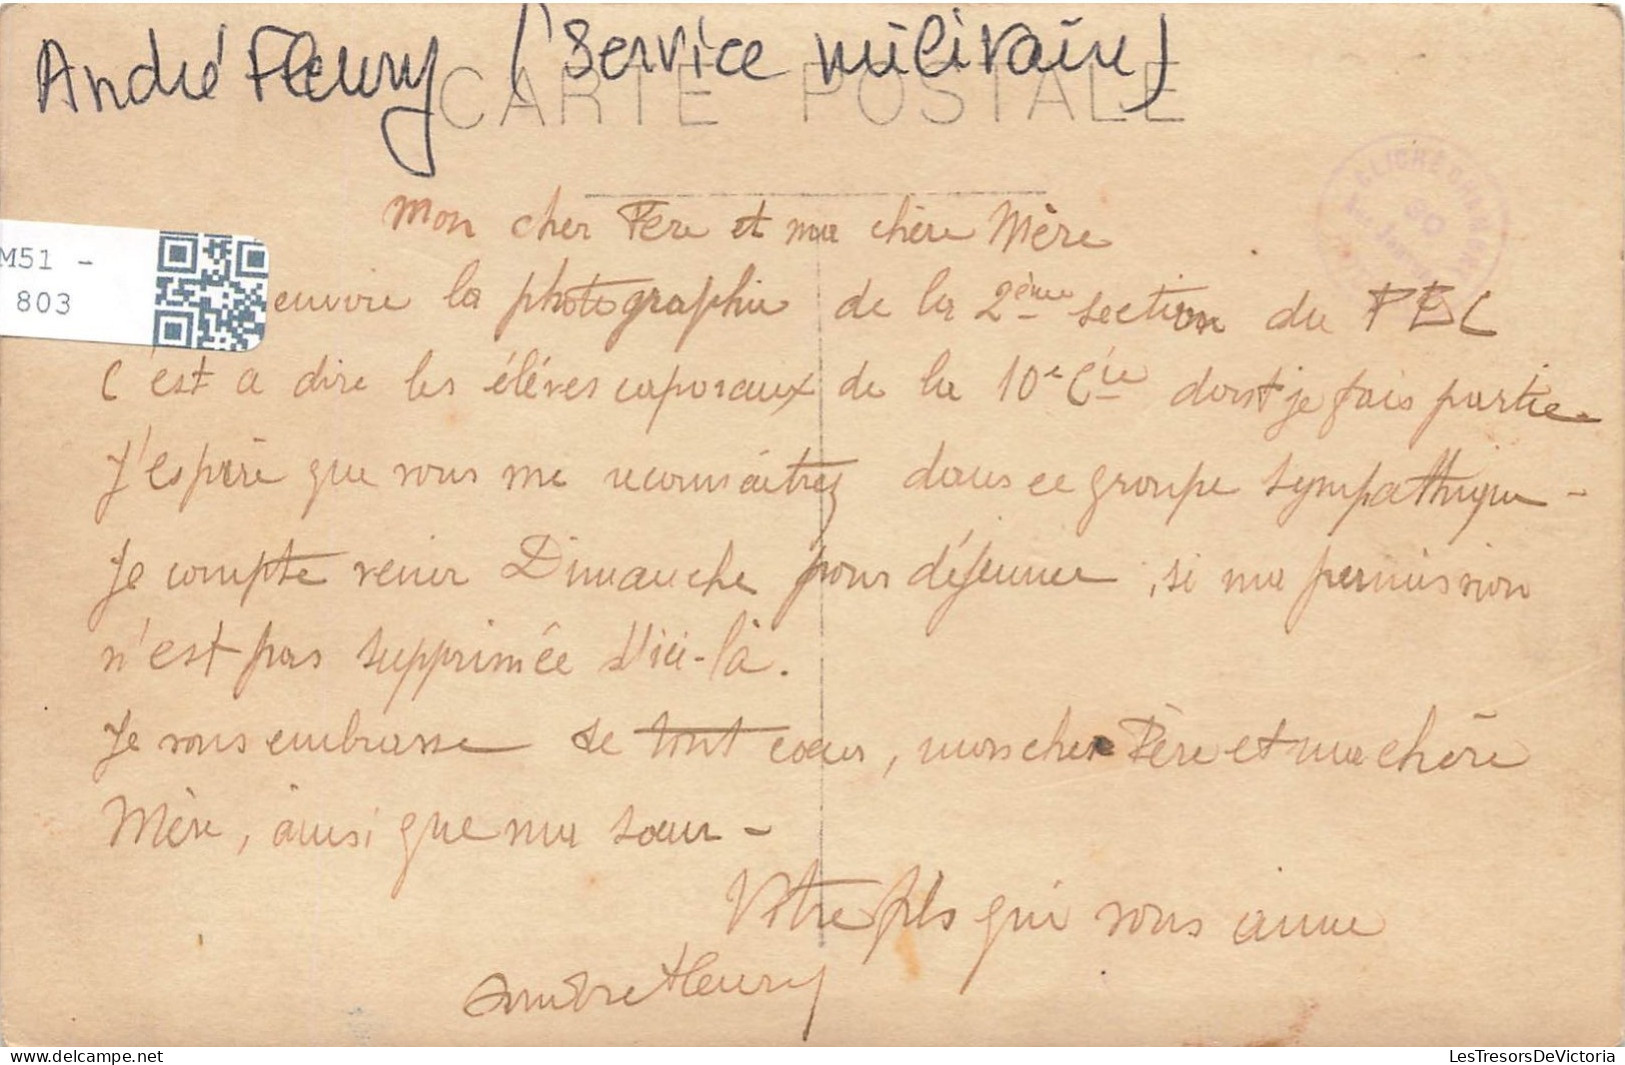 André Fleury (Service militaire)
CARTE POSTALE
Mon cher Père et ma chère Mère
M51 -
803
envoie la photographie de la 2ème section du PEC
C'est a dire les élèves caporaux de la 10e Cie dont je fais partie.
J'espère que vous me reconnaîtrez dans ce groupe sympathique -
Je compte venir Dimanche pour déjeuner, si ma permission
n'est pas supprimée d'ici-là.
Je vous embrasse de tout coeur, mon cher Père et ma chère
Mère, ainsi que ma soeur -
Votre fils qui vous aime
André Fleury
CLICHÉ
LesTresorsDeVictoria